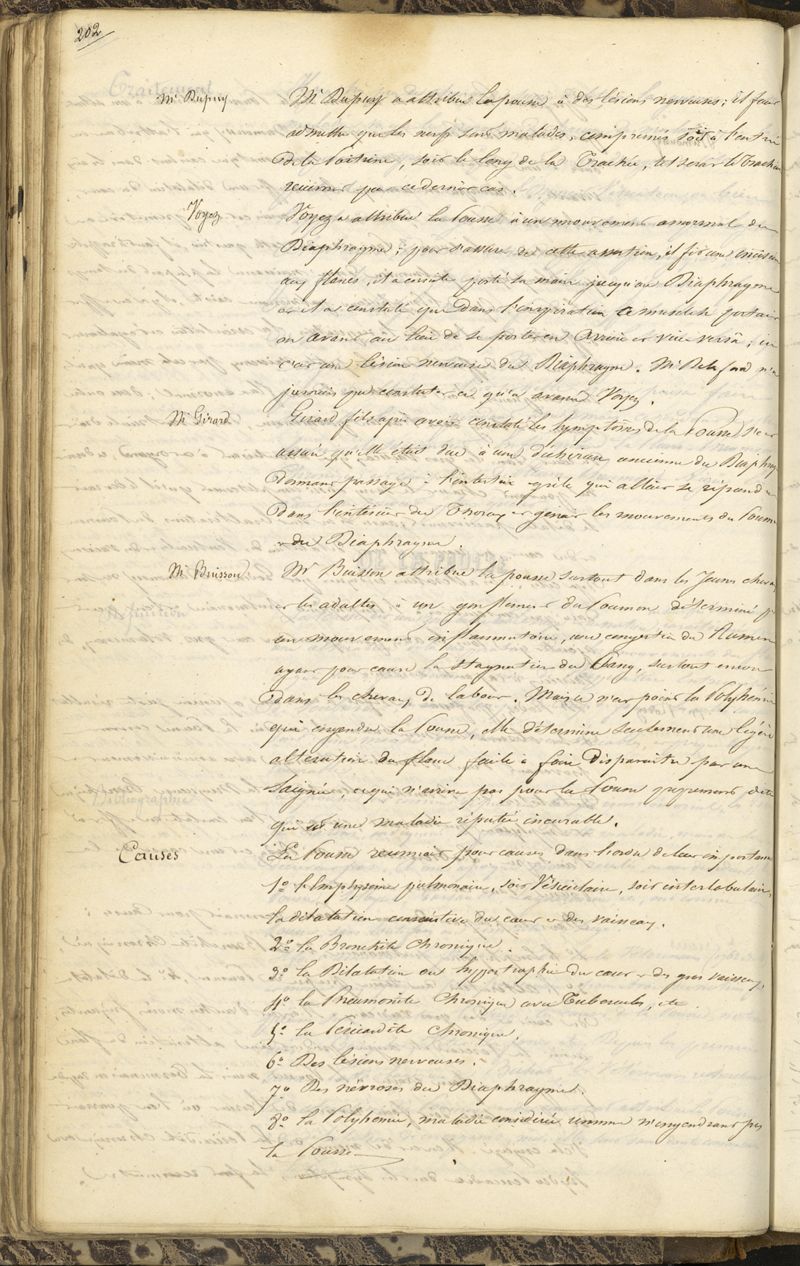 202
Mr Dupuy
Mr Dupuy a attribué la pousse à des lésions nerveuses ; il faut
admettre que les nerfs sont malades, comprimés soit à l'entrée
de la Poitrine, soit le long de la Trachée, et serait le Trachée
pour ce dernier cas.
Voyez
Voyez a attribué la Pousse à un mouvement anormal du
Diaphragme ; pour s'assurer de cette assertion, il fit une incision
aux flancs, et a ensuite porté sa main jusqu'au Diaphragme
et a constaté que dans l'inspiration ce muscle se portait
en avant au lieu de se porter en Arrière et vice versâ ;
c'est une lésion nerveuse du Diaphragme. Mr Delafond n'a
jamais pu constater ce qu'a avancé Voyez.
Mr Girard
Girard fils après avoir constaté les symptômes de la Pousse s'est
assuré qu'elle était due à une déchirure ancienne du Diaphrag
donnant passage à l'intestin grêle qui allait se répandre
dans l'intérieur du Thorax et gêner les mouvements du Poumon
et du Diaphragme.
Mr Buisson
Mr Buisson attribue la pousse surtout dans les Jeunes chevaux
et les adultes à un gonflement du Poumon déterminé p
un mouvement inflammatoire, une congestion du
ayant pour cause la stagnation du Sang, surtout encore
dans les chevaux de labour. Mais ce n'est point la Polyhémie
qui engendre la Pousse, elle détermine seulement une légère
altération du flanc facile à faire disparaître par une
Saignée, ce qui n'arrive pas pour la Pousse proprement dite
qui est une maladie réputée incurable.
Causes
La Pousse reconnaît pour causes dans l'ordre de leur importance
1o L'Emphysème pulmonaire, soit Vésiculaire, soit interlobulaire,
la dilatation consécutive du cœur et des vaisseaux.
2o la Bronchite Chronique.
3o la Dilatation ou hypertrophie du cœur et des gros vaisseaux,
4o la Pneumonite Chronique avec Tubercules, etc
5o la Péricardite Chronique.
6o Des lésions nerveuses.
7o Des névroses du Diaphragme.
8o la Polyhémie, maladie considérée comme n'engendrant pas
la Pousse.